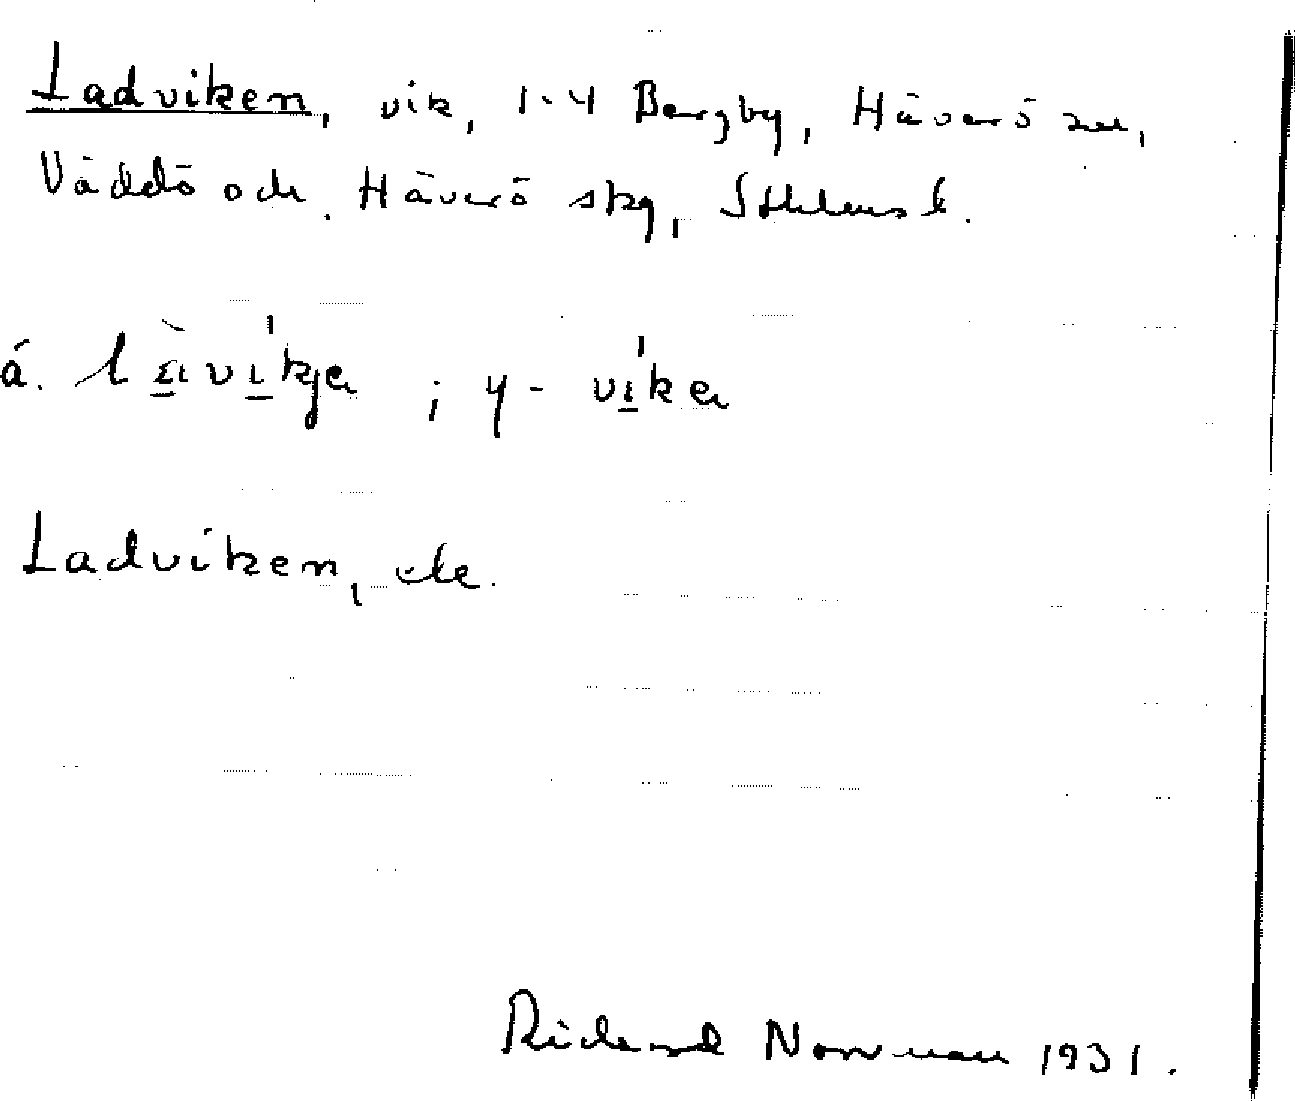 Ladviken, vik, 1-4 Bergby, Häverö sn,
Väddö och Häverö skg, Sthlms l.
Ladviken, etc.
Richard Norrman 1931.